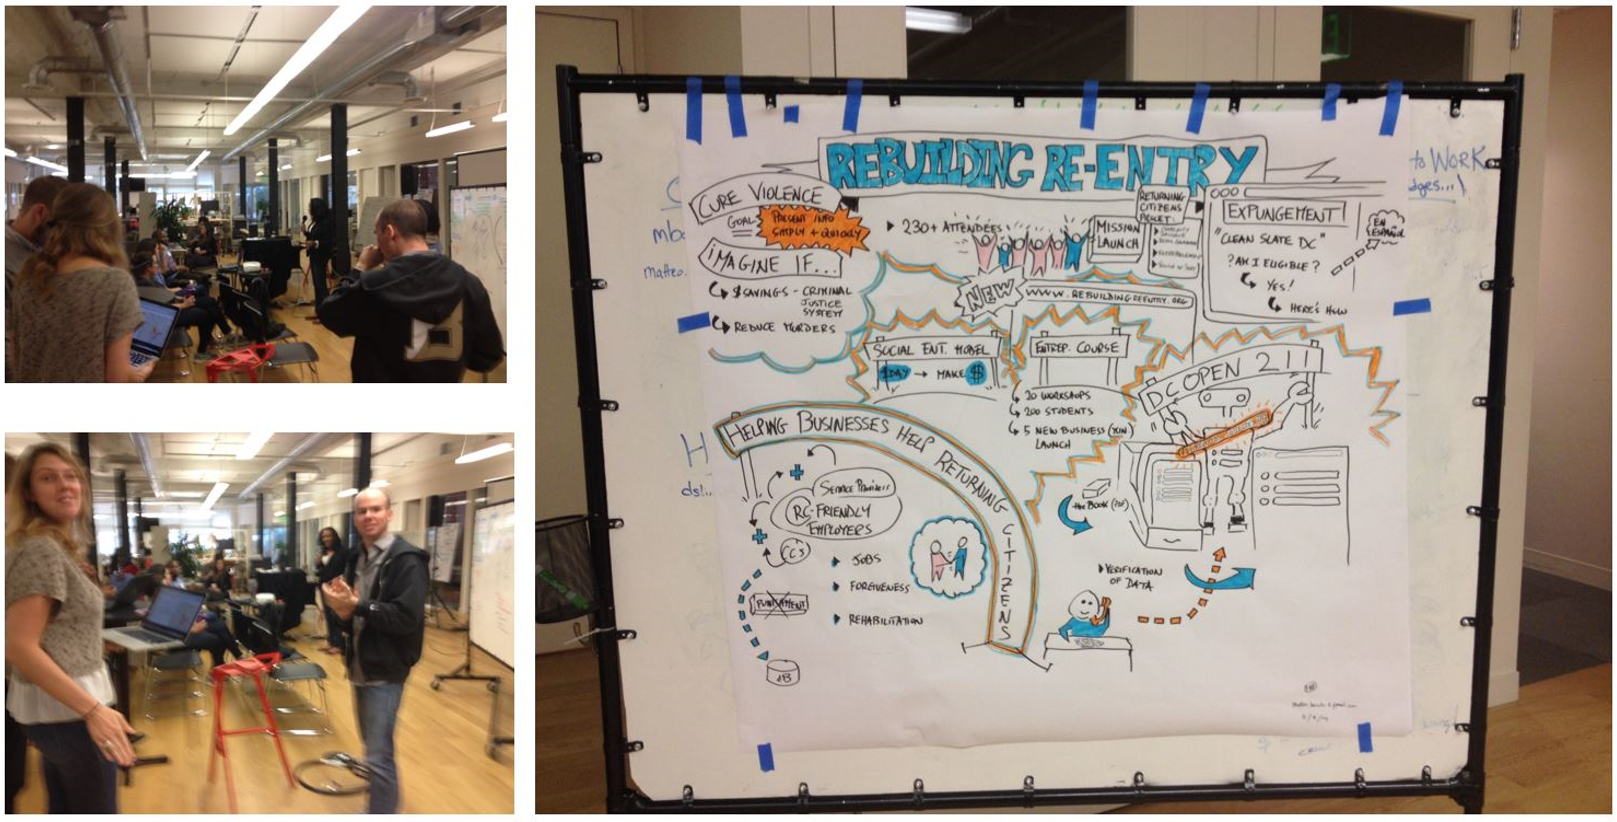 REBUILDING RE-ENTRY
CURE VIOLENCE
GOAL
PRESENT INFO
SIMPLY + QUICKLY
IMAGINE IF...
$SAVINGS - CRIMINAL
JUSTICE
SYSTEM
REDUCE MURDERS
230+ ATTENDEES
MISSION
LAUNCH
RETURNING
CITIZENS
EXPUNGEMENT!
"CLEAN SLATE DC"
?AM I ELIGIBLE?
YES!
HERE'S HOW
EN
ESPAÑOL
NEW
WWW.REBUILDINGREENTRY.ORG
SOCIAL ENT. MODEL
$DAY → MAKE $
ENTREP. COURSE
20 WORKSHOPS
200 STUDENTS
5 NEW BUSINESS
LAUNCH
DC OPEN 211
HELPING BUSINESSES HELP RETURNING CITIZENS
SERVICE PROVIDERS
RC-FRIENDLY
EMPLOYERS
CC'S
PUNISHMENT
DB
JOBS
FORGIVENESS
REHABILITATION
THE BOOK (PDF)
VERIFICATION
OF DATA
to WORK
B